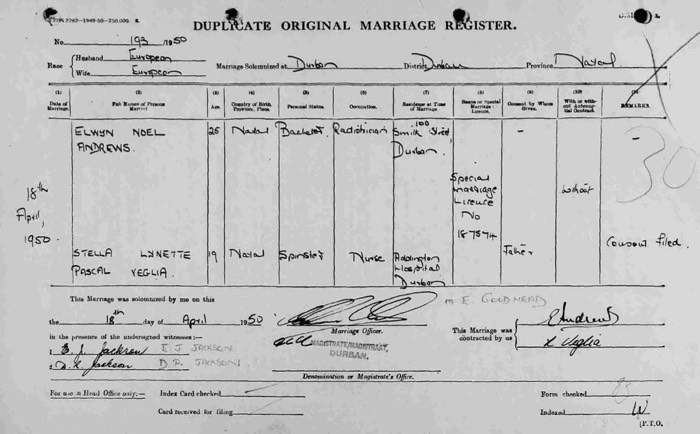 DUPLICATE ORIGINAL MARRIAGE REGISTER.
No. 193 /1950
Race { Husband European
Wife European
Marriage Solemnized at Durban District Durban Province Natal
(1) (2) (3) (4) (5) (6) (7) (8) (9) (10)
Date of Marriage. Full Names of Persons Married. Age. Country of Birth, Province, Place. Personal Status. Occupation. Residence at Time of Marriage. Banns or Special Marriage Licence. Consent by Whom Given. With or without Antenuptial Contract. REMARKS.
ELWYN NOEL ANDREWS. 25 Natal Bachelor Radiotrician 100 Smith Street Durban. - -
30
18th April, 1950.
Special Marriage Licence No 187574
without
STELLA LYNETTE PASCAL VEGLIA. 19 Natal Spinster Nurse Addington Hospital Durban Father Consent filed.
This Marriage was solemnized by me on this
the 18th day of April 1950
M. E. GOODHEAD
Marriage Officer.
in the presence of the undersigned witnesses:—
1 E. J. Jackson E J JACKSON
2 D. R. Jackson D. R. JACKSON
MAGISTRATE/MAGISTRAAT,
DURBAN.
Denomination or Magistrate's Office.
This Marriage was contracted by us { E Andrews
L Veglia
For use in Head Office only:— Index Card checked
Card received for filing
Form checked
Indexed
[P.T.O.